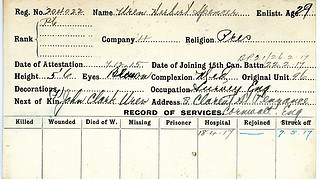 Reg. No. 204022 Name Uren Herbert Spencer Enlistt. Age 29
Rank Pte Company H Religion Pres
Date of Attestation 7.12.15. Date of Joining 15th Can. Battn 22.2.17
Height 5' 6 Eyes Brown Complexion Med Original Unit 96
Decorations Occupation Survey Eng
Next of Kin John Clark Uren Address 8 Clarence St Penzance
Cornwall Eng
RECORD OF SERVICES
Killed Wounded Died of W. Missing Prisoner Hospital Rejoined Struck off
18.4.17 7.5.17